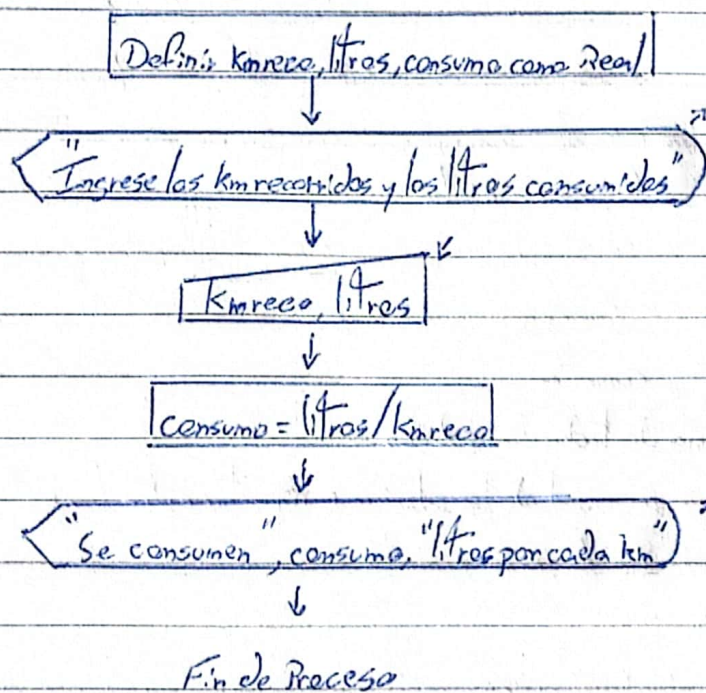 Definir kmreco, litros, consumo como Real
"Ingrese los km recorridos y los litros consumidos"
kmreco, litros
consumo = litros/kmreco
"Se consumen", consumo, "litros por cada km"
Fin de Proceso